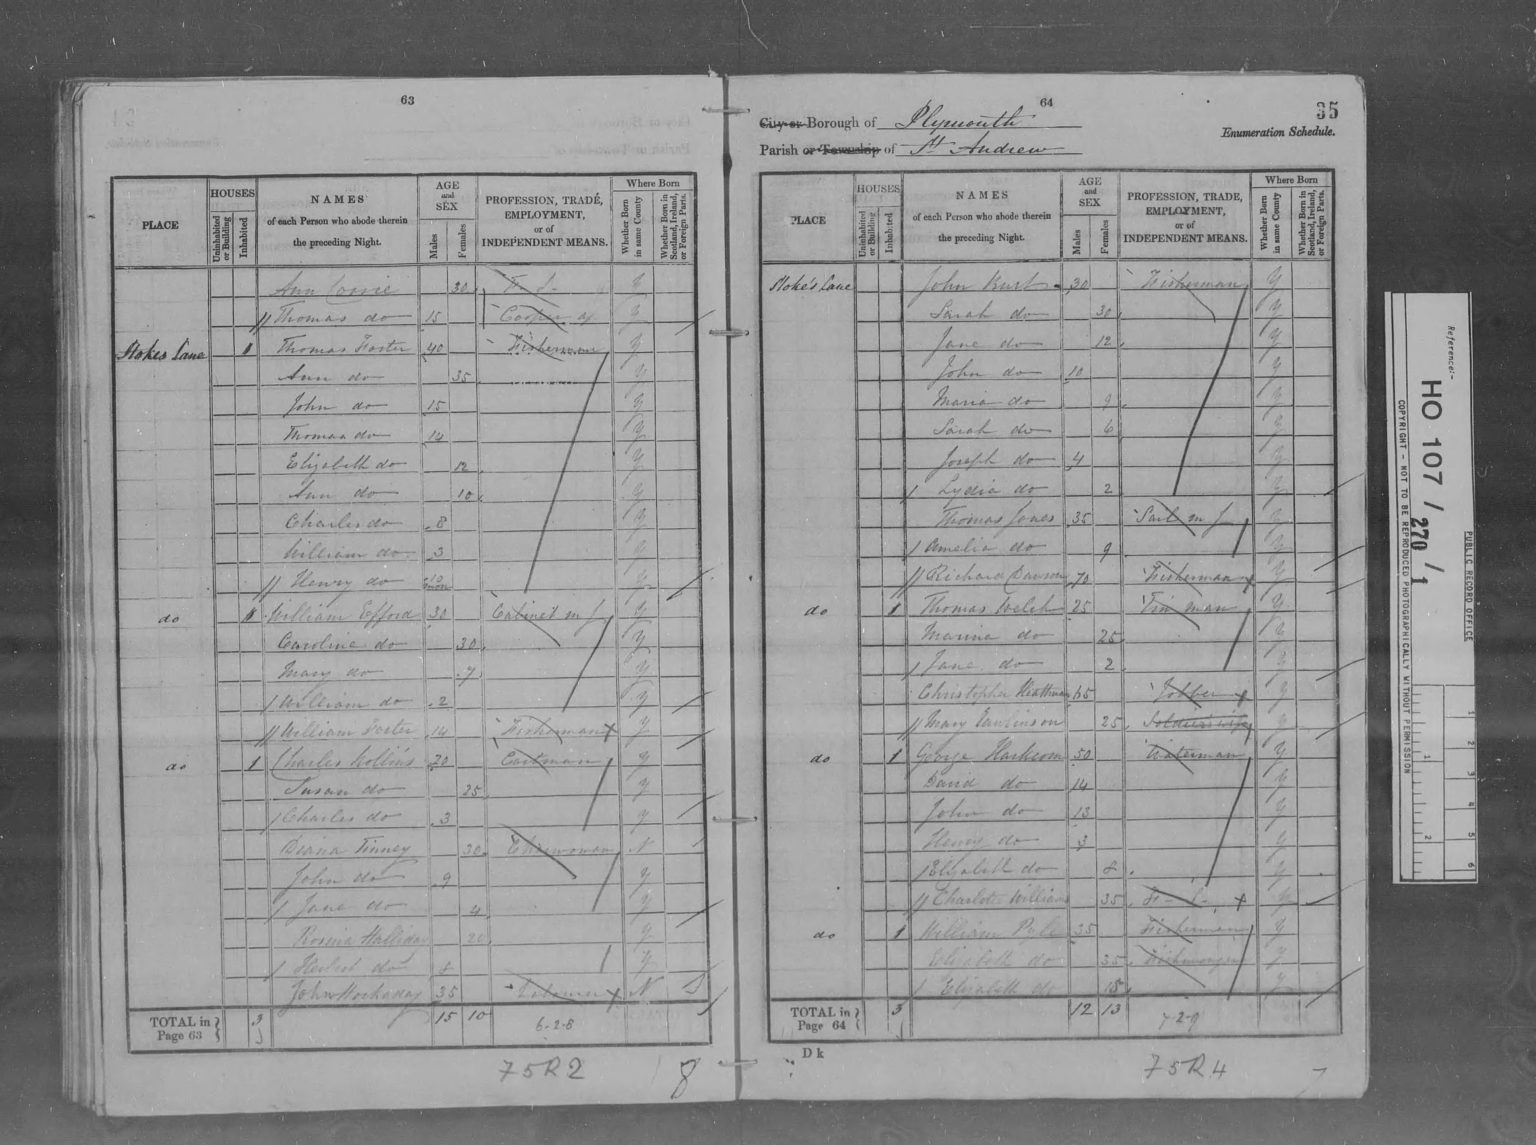 63
HOUSES
AGE and SEX
Where Born
PLACE
Uninhabited or Building
Inhabited
NAMES
of each Person who abode therein
the preceding Night.
Males
Females
PROFESSION, TRADE,
EMPLOYMENT,
or of
INDEPENDENT MEANS.
Whether Born in same County
Whether Born in Scotland, Ireland, or Foreign Parts.
Ann 30 F. S. Y
Thomas do 15 Cooper ap Y
Stokes Lane 1 Thomas Foster 40 Fisherman Y
Ann do 35 Y
John do 15 Y
Thomas do 14 Y
Elizabeth do 12 Y
Ann do 10 Y
Charles do 8 Y
William do 3 Y
Henry do 10 mon Y
do 1 William Efford 30 Cabinet m J Y
Caroline do 30 Y
Mary do 7 Y
William do 2 Y
William Foster 14 Fisherman Y
do 1 Charles Collins 70 Cartman Y
Susan do 25 Y
Charles do 3 Y
Diana Finney 30 Charwoman N
John do 9 Y
Jane do 4 Y
Rosina Halliday 20 Y
Herbert do 8 Y
John Hockaday 35 N
TOTAL in Page 63 3 15 10
6-2-8
75R2
8
64
35
City or Borough of Plymouth
Parish or Township of St Andrew
Enumeration Schedule.
HOUSES
AGE and SEX
Where Born
PLACE
Uninhabited or Building
Inhabited
NAMES
of each Person who abode therein
the preceding Night.
Males
Females
PROFESSION, TRADE,
EMPLOYMENT,
or of
INDEPENDENT MEANS.
Whether Born in same County
Whether Born in Scotland, Ireland, or Foreign Parts.
Stoke's Lane John Burt 30 Fisherman Y
Sarah do 30 Y
Jane do 12 Y
John do 10 Y
Maria do 9 Y
Sarah do 6 Y
Joseph do 4 Y
Lydia do 2 Y
Thomas Jones 35 Sail m J Y
Amelia do 9 Y
Richard Dawson 70 Fisherman Y
do 1 Thomas Welch 25 Tin man Y
do 25 Y
Jane do 2 Y
Christopher 65 Jobber Y
Mary 25 Soldier's wife Y
do 1 George 50 Waterman Y
David do 14 Y
John do 13 Y
Henry do 3 Y
Elizabeth do 8 Y
Charlotte Williams 35 F. S. Y
do 1 William Pyle 35 Fisherman Y
Elizabeth do 35 Y
Elizabeth do 15 Y
TOTAL in Page 64 3 12 13
7-2-9
D k
75R4
7
Reference:-
HO 107 / 270 / 1
PUBLIC RECORD OFFICE
COPYRIGHT - NOT TO BE REPRODUCED PHOTOGRAPHICALLY WITHOUT PERMISSION
1 2
1 2 3 4 5 6